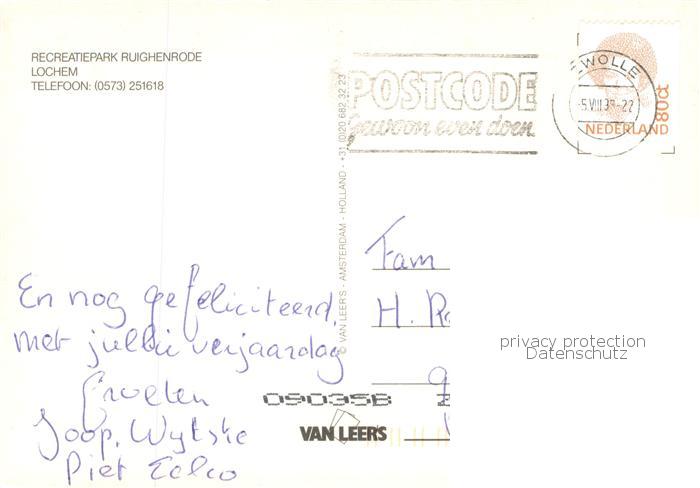 RECREATIEPARK RUIGHENRODE
LOCHEM
TELEFOON: (0573) 251618
POSTCODE
Gewoon even doen.
ZWOLLE
-5.VIII.9
NEDERLAND
80ct
© VAN LEER'S - AMSTERDAM - HOLLAND - +31 (0)20 682 32 23
Fam
H.
En nog gefeliciteerd,
met jullie verjaardag
Groeten
Joop, Wytske
Piet Eelco
09035B
VAN LEER'S
privacy protection
Datenschutz